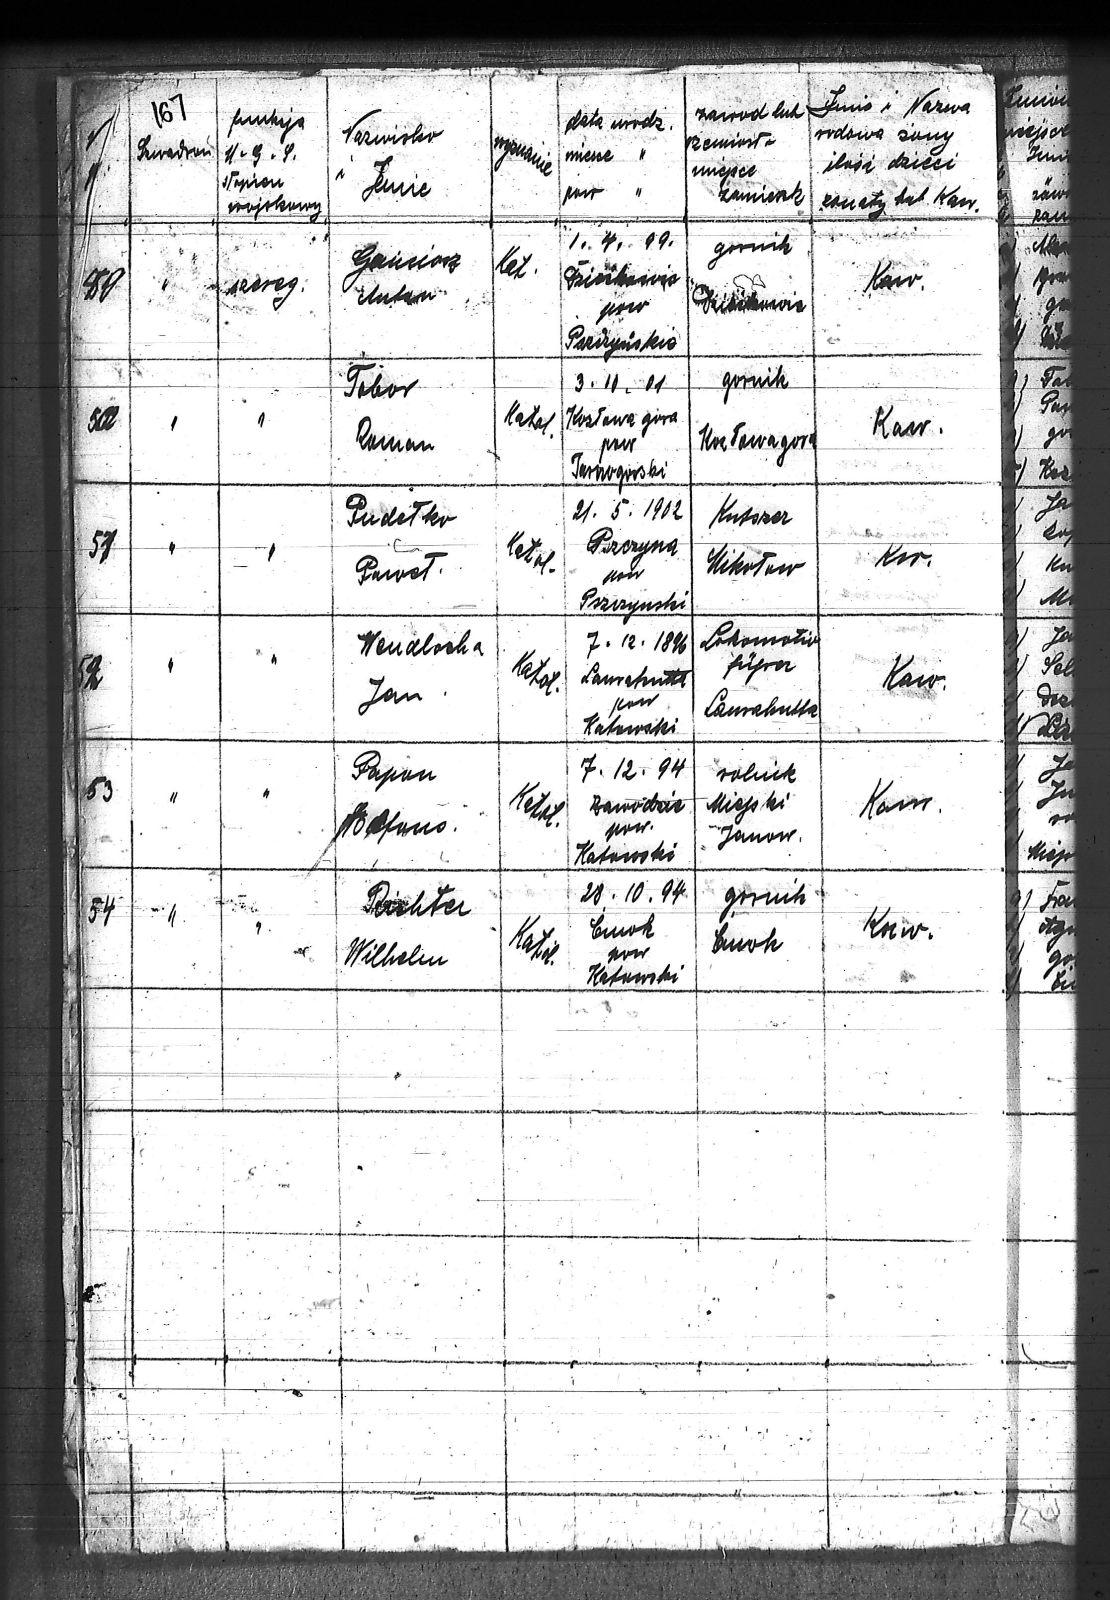 167
Szwadron
funkcja
M. G. S.
stopien
wojskowy
Nazwisko
i Imie
wyznanie
data urodz.
miejsce "
pow "
zawod lub
rzemiosło
miejsce
zamieszk
Imie i Nazwa
rodowa żony
ilość dzieci
żonaty lub Kaw.
50
"
szereg.
Anton
Kat.
1. 4. 99.
pow
Pszczyńskie
gornik
Kaw.
"
"
Tobor
Roman
Katol.
3. 10. 01
Kozłowa gora
pow
Tarnogorski
gornik
Kozłowagora
Kaw.
51
"
"
Pudełko
Paweł.
Katol.
21. 5. 1902
Pszczyna
pow
Pszczynski
Kutszer
Mikołow
Kw.
52
"
"
Wendlocha
Jan
Katol.
7. 12. 1896
Laurahutta
pow
Katowski
Lokomotiv
führer
Laurahutta
Kaw.
53
"
"
Papon
Alfons.
Katol.
7. 12. 94
Zawodzie
pow.
Katowski
rolnik
Miejski
Janow.
Kaw.
54
"
"
Richter
Wilhelm
Katol.
28. 10. 94
Cmok
pow
Katowski
gornik
Cmok
Kaw.